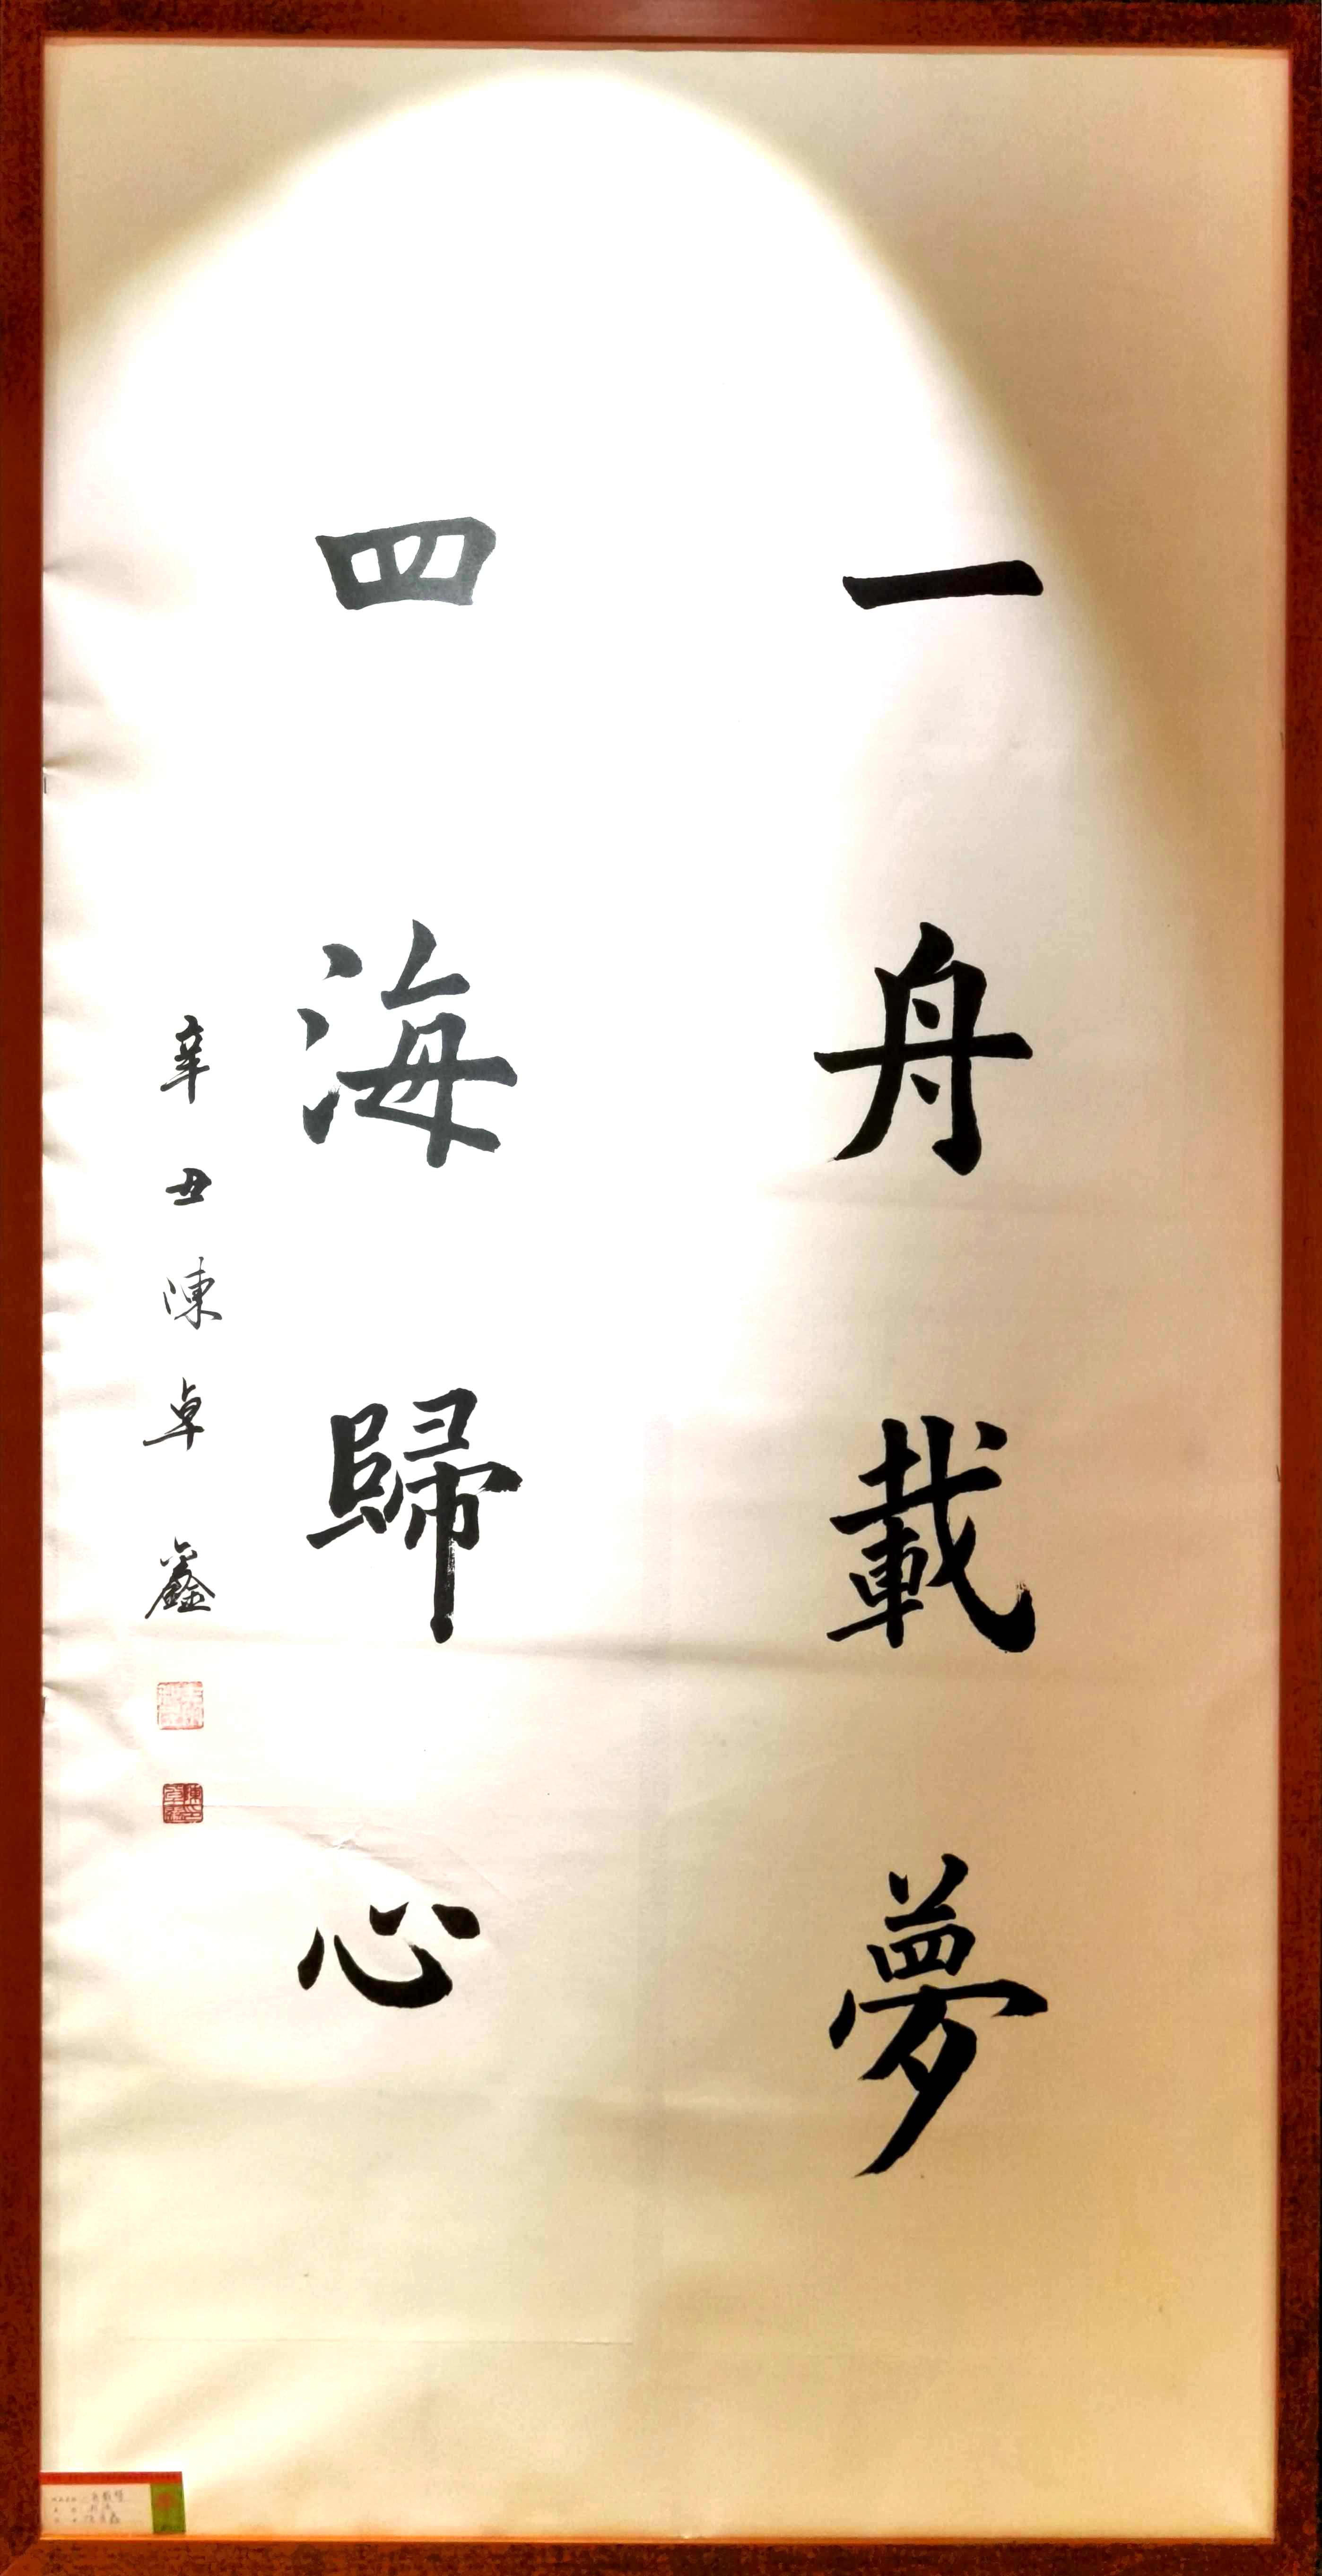 一舟載夢
四海歸心
辛丑陳卓鑫